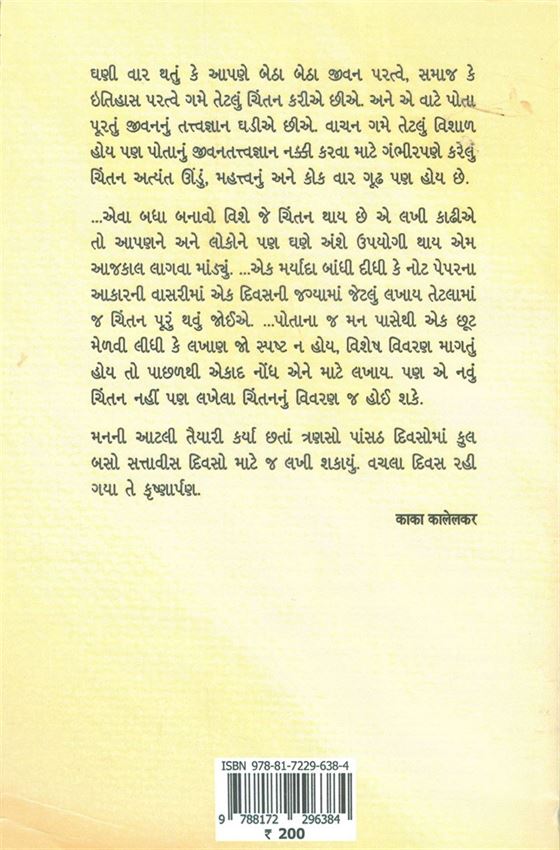 ઘણી વાર થતું કે આપણે બેઠા બેઠા જીવન પરત્વે, સમાજ કે
ઇતિહાસ પરત્વે ગમે તેટલું ચિંતન કરીએ છીએ. અને એ વાટે પોતા
પૂરતું જીવનનું તત્ત્વજ્ઞાન ઘડીએ છીએ. વાચન ગમે તેટલું વિશાળ
હોય પણ પોતાનું જીવનતત્ત્વજ્ઞાન નક્કી કરવા માટે ગંભીરપણે કરેલું
ચિંતન અત્યંત ઊંડું, મહત્ત્વનું અને કોક વાર ગૂઢ પણ હોય છે.
...એવા બધા બનાવો વિશે જે ચિંતન થાય છે એ લખી કાઢીએ
તો આપણને અને લોકોને પણ ઘણે અંશે ઉપયોગી થાય એમ
આજકાલ લાગવા માંડ્યું. ...એક મર્યાદા બાંધી દીધી કે નોટ પેપરના
આકારની વાસરીમાં એક દિવસની જગ્યામાં જેટલું લખાય તેટલામાં
જ ચિંતન પૂરું થવું જોઈએ. ...પોતાના જ મન પાસેથી એક છૂટ
મેળવી લીધી કે લખાણ જો સ્પષ્ટ ન હોય, વિશેષ વિવરણ માગતું
હોય તો પાછળથી એકાદ નોંધ એને માટે લખાય. પણ એ નવું
ચિંતન નહીં પણ લખેલા ચિંતનનું વિવરણ જ હોઈ શકે.
મનની આટલી તૈયારી કર્યા છતાં ત્રણસો પાંસઠ દિવસોમાં કુલ
બસો સત્તાવીસ દિવસો માટે જ લખી શકાયું. વચલા દિવસ રહી
ગયા તે કૃષ્ણાર્પણ.
काका कालेलकर
ISBN 978-81-7229-638-4
9 788172 296384
₹ 200